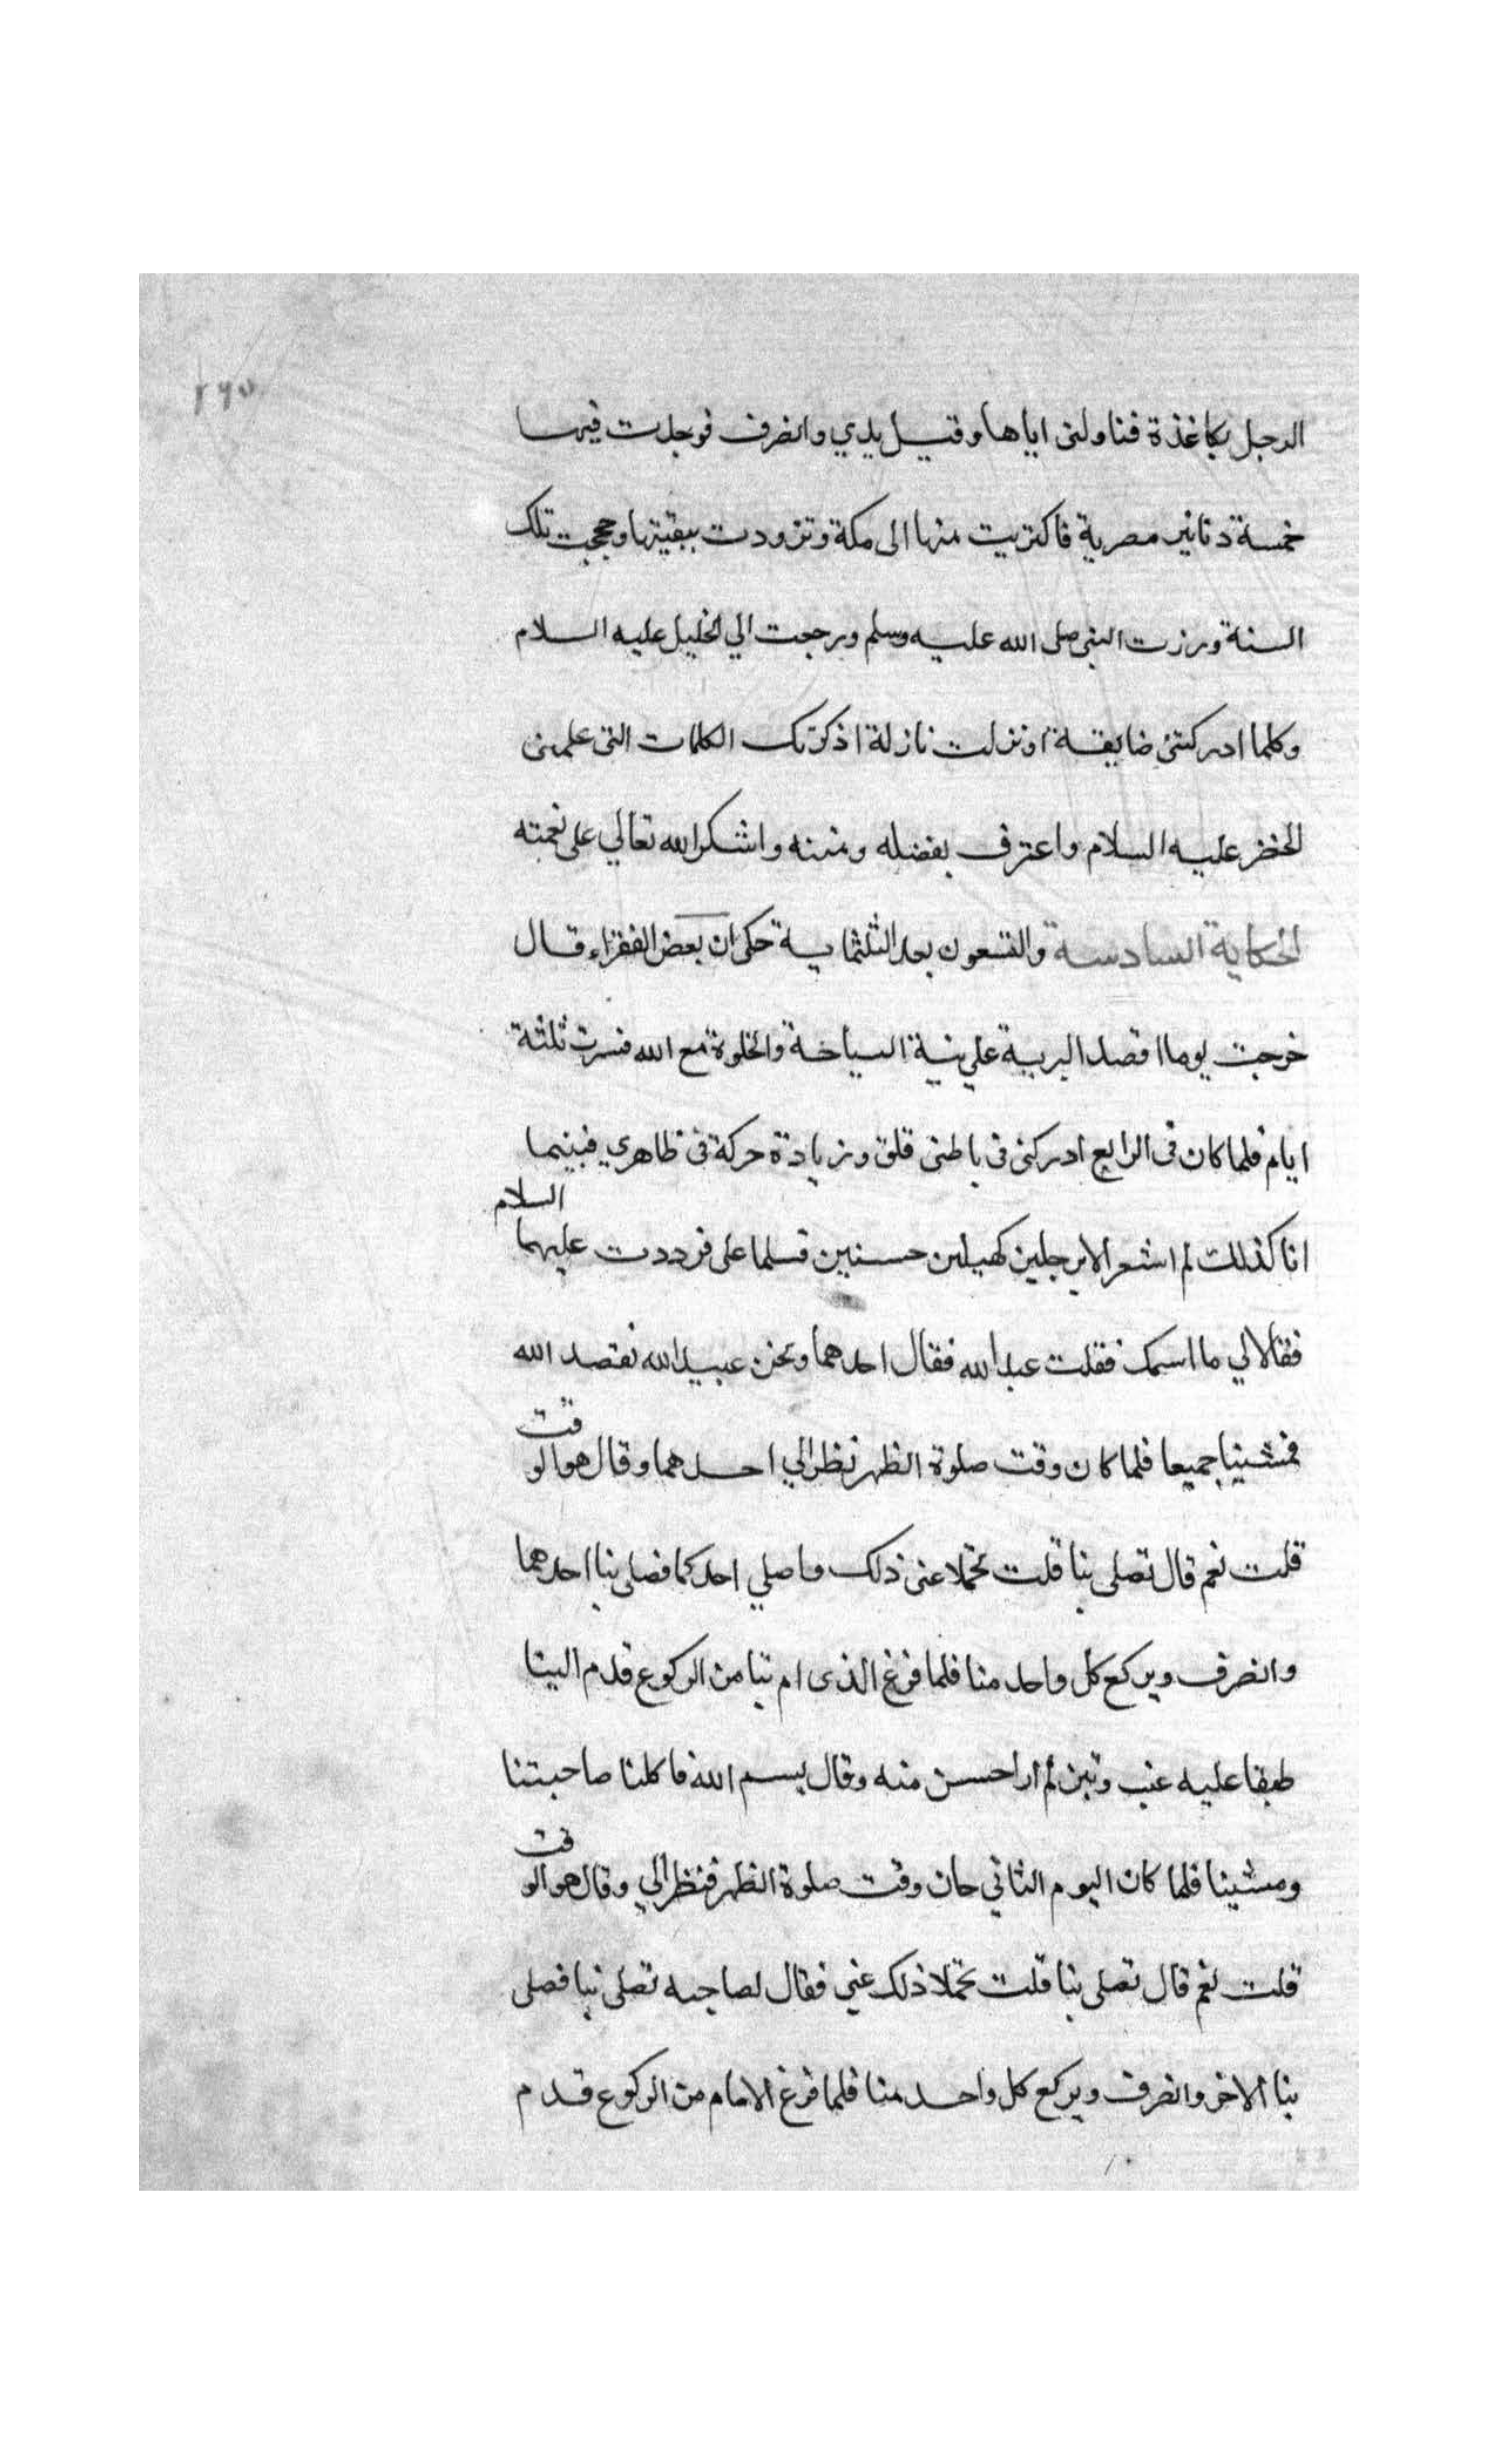 ٢٦٥
الرجل بكاغذة فناولنى اياها وقبل يدي وانصرف فوجدت فيها
خمسة دنانير مصرية فاكتريت منها الى مكة وتزودت ببقيتها وحججت تلك
السنة وزرت النبى صلى الله عليه وسلم ورجعت الي الخليل عليه السلام
وكلما ادركتنى ضايقة او نزلت نازلة اذكر تلك الكلمات التى علمنى
الخضر عليه السلام واعترف بفضله ومننه واشكر الله تعالي على نعمته
الحكاية السادسة والتسعون بعد الثلثماية حكى ان بعض الفقراء قال
خرجت يوما اقصد البرية علي نية السياحة والخلوة مع الله فسرت ثلثة
ايام فلما كان فى الرابع ادركنى فى باطنى قلق وزيادة حركة فى ظاهري فبينما
انا كذلك لم اشعر الا برجلين كهيلين حسنين فسلما على فرددت عليهما السلام
فقالا لي ما اسمك فقلت عبد الله فقال احدهما ونحن عبيد الله نقصد الله
فمشينا جميعا فلما كان وقت صلوة الظهر نظر الي احدهما وقال هو الوقت
قلت نعم قال تصلى بنا قلت تحملا عنى ذلك واصلي احدكما فصلى بنا احدهما
وانصرف ويركع كل واحد منا فلما فرغ الذى ام بنا من الركوع قدم الينا
طبقا عليه عنب وتين لم ار احسن منه وقال بسم الله فاكلنا صاحبتنا
ومشينا فلما كان اليوم الثاني حان وقت صلوة الظهر فنظر الي وقال هو الوقت
قلت نعم قال تصلى بنا قلت تحملا ذلك عني فقال لصاحبه تصلى بنا فصلى
بنا الاخر وانصرف ويركع كل واحد منا فلما فرغ الامام من الركوع قدم